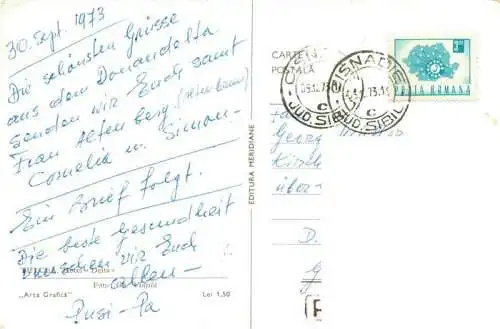 30. Sept. 1973
Die schönsten Grüsse
aus dem Donaudelta
senden wir Euch samt
Frau Altenberg
Cornelia u. Simon-
Ein Brief folgt.
Die beste Gesundheit
wünschen wir Euch
allen-
Pusi-Pa
TULCEA Hotel „Delta"
Foto:
„Arta Grafică"
Lei 1,50
EDITURA MERIDIANE
CARTE
POSTALA
CISNADIE
JUD. SIBIU
CISNADIE
JUD. SIBIU
POȘTA ROMANA
Georg
Kirch
über-
D.